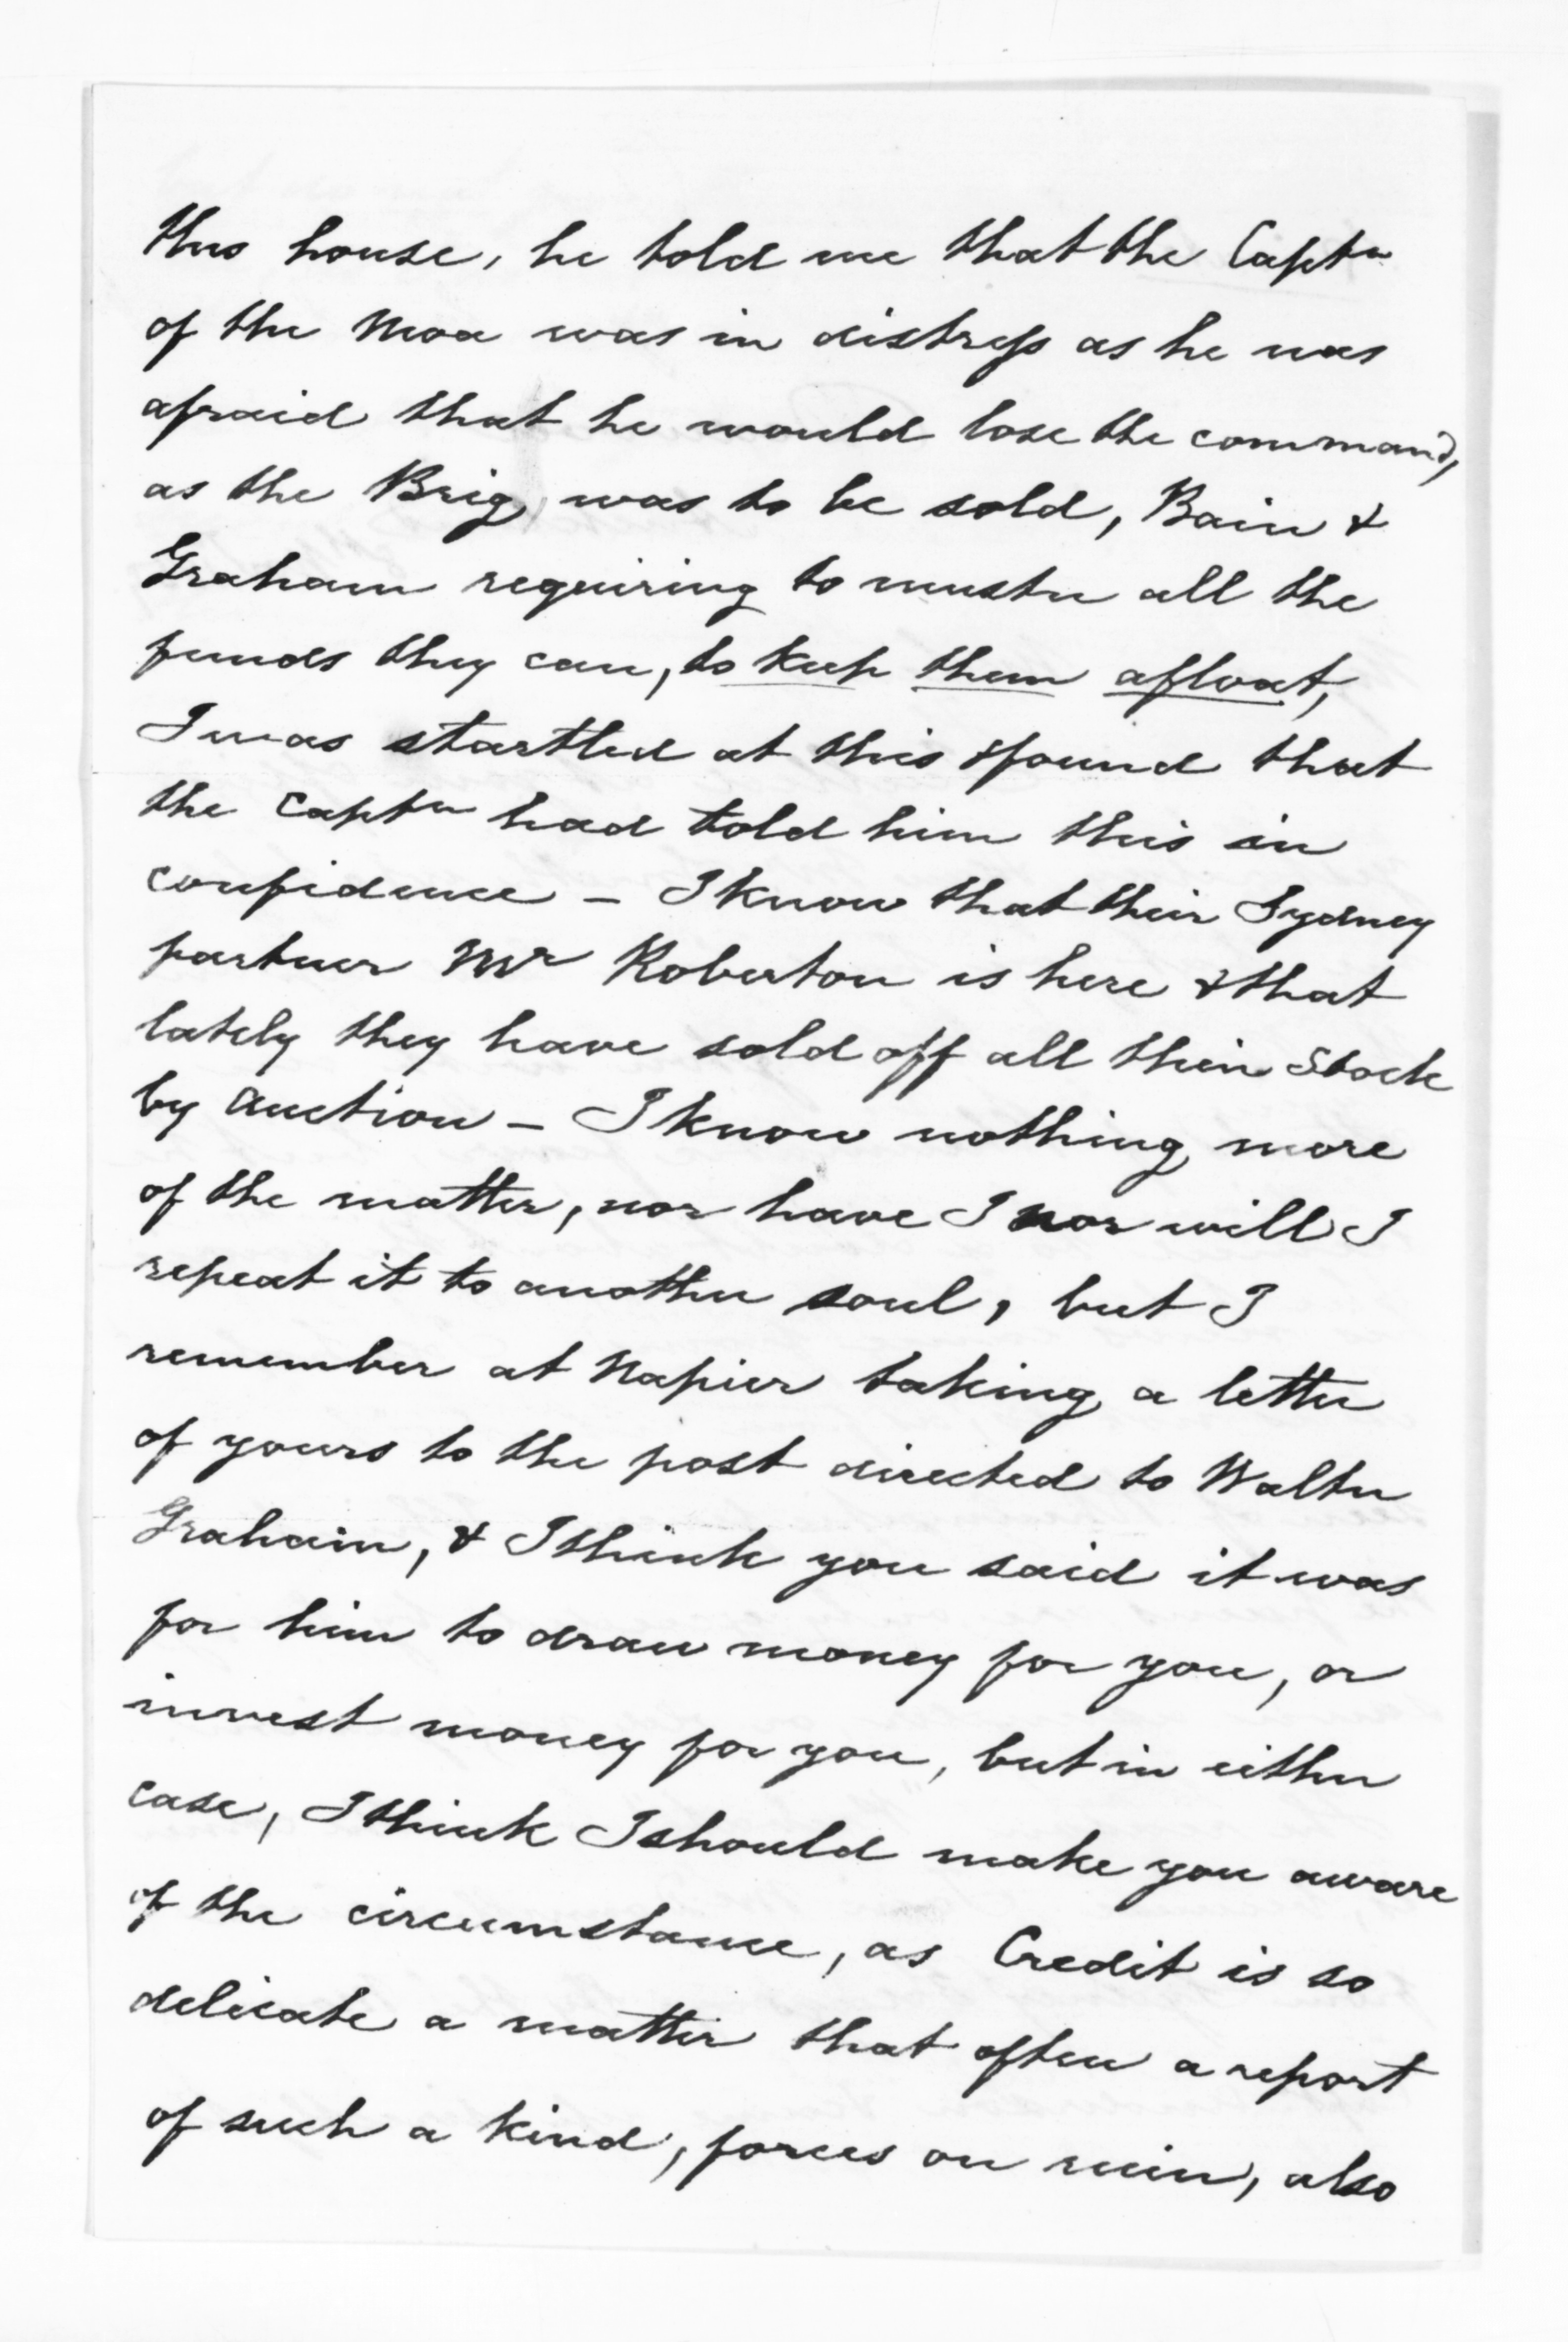 this house, he told me that the Captn
of the Moa was in distress as he was
afraid that he would lose the command,
as the Brig was to be sold, Bain &
Graham requiring to muster all the
funds they can, to keep them afloat,
I was startled at this & found that
the Captn had told him this in
confidence – I know that their Sydney
partner Mr Roberton is here & that
lately they have sold off all their Stock
by Auction – I know nothing more
of the matter, nor have I nor will I
repeat it to another soul, but I
remember at Napier taking a letter
of yours to the post directed to Walter
Graham, & I think you said it was
for him to draw money for you, or
invest money for you, but in either
case, I think I should make you aware
of the circumstance, as Credit is so
delicate a matter that often a report
of such a kind, forces on ruin, also